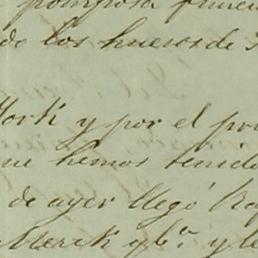 pomposa
do los huesos de
York y por el
que hemos tenido
de ayer llegó
Merck y Cª. y le